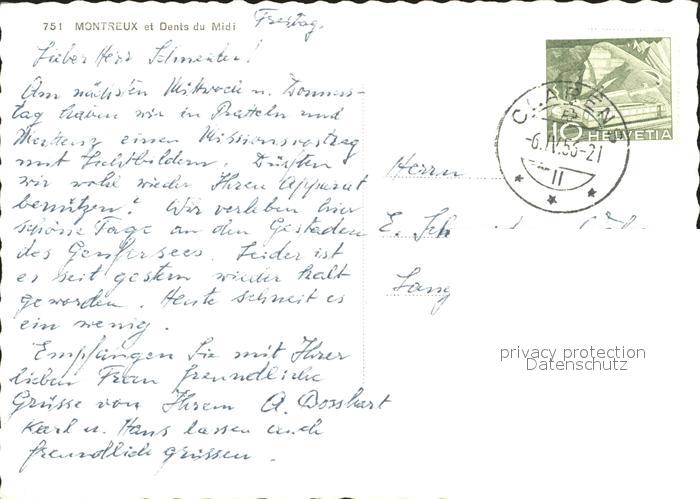 751 MONTREUX et Dents du Midi
Freitag.
Lieber Herr
Am nächsten Mittwoch u. Donners-
tag haben wir in Pratteln und
Muttenz einen Missionsvortrag
mit Lichtbildern. Dürften
wir wohl wieder Ihren Apparat
benützen? Wir verleben hier
schöne Tage an den Gestaden
des Genfersees. Leider ist
es seit gestern wieder kalt
geworden. Heute schneit es
ein wenig.
Empfangen Sie mit Ihrer
lieben Frau freundliche
Grüsse von Ihrem A. Bosshart
Karl u. Hans lassen auch
freundlich grüssen.
CLARENS
-6.IV.56-21
II
10 HELVETIA
Herrn
E. Sch
privacy protection
Datenschutz